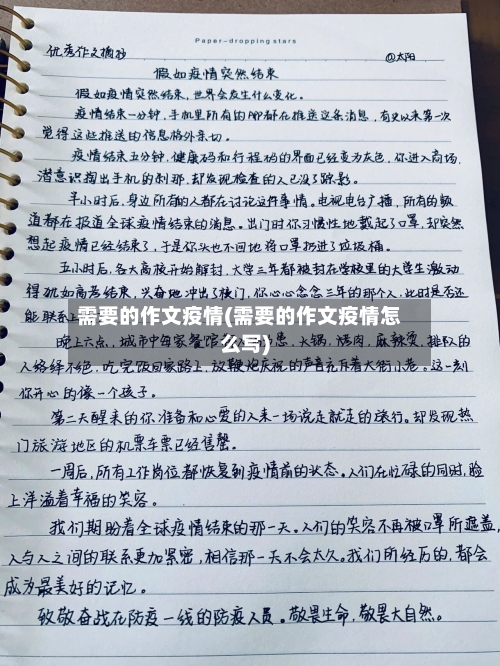 Paper-dropping stars
优秀作文摘抄
@太阳
假如疫情突然结束
假如疫情突然结束，世界会发生什么变化。
疫情结束一分钟，手机里所有的APP都在推送这条消息，有史以来第一次
觉得这些推送的信息格外亲切。
疫情结束五分钟，健康码和行程码的界面已经变为灰色，你进入商场，
潜意识掏出手机的刹那，却发现检查的人已没了踪影。
半小时后，身边所有的人都在讨论这件事情。电视电台广播，所有的频
道都在报道全球疫情结束的消息。出门时你习惯性地戴起了口罩，却突然
想起疫情已经结束了，于是你头也不回地将口罩扔进了垃圾桶。
五小时后，各大高校开始解封，大学三年都被封在学校里的大学生激动
得犹如高考结束，兴奋地冲出了校门，你心心念念三年的那个人，此时是否还
能联系上
需要的作文疫情(需要的作文疫情怎
么写)
晚上六点，城市中每家餐馆 火锅，烤肉，麻辣烫，排队的
人络绎不绝，吃完饭回家路上，放鞭炮庆祝的声音充斥着大街小巷。这一刻
你开心的像一个孩子。
第二天醒来的你准备和心爱的人来一场说走就走的旅行。却发现热
门旅游地区的机票车票已经售罄。
一周后，所有工作岗位都恢复到疫情前的状态。人们在忙碌的同时，脸
上洋溢着幸福的笑容。
我们期盼着全球疫情结束的那一天。人们的笑容不再被口罩所遮盖，
人与人之间的联系更加紧密，相信那一天不会太久。我们所经历的，都会
成为最美好的记忆。
致敬奋战在防疫一线的防疫人员。敬畏生命，敬畏大自然。